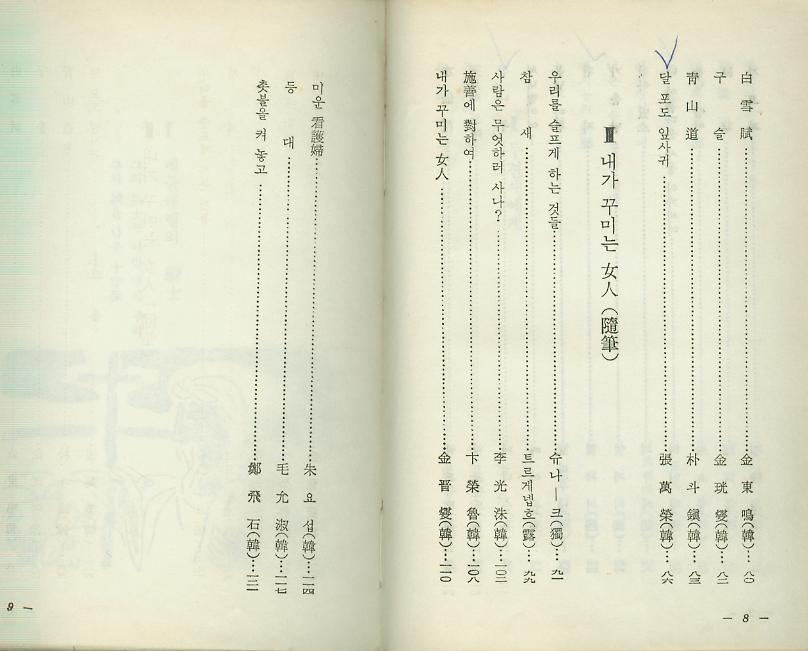 白雪賦……金東鳴(韓)…八○
구슬……金珖燮(韓)…八二
青山道……朴斗鎭(韓)…八三
달 포도 잎사귀……張萬榮(韓)…八六
Ⅲ 내가 꾸미는 女人(隨筆)
우리를 슬프게 하는 것들……슈나ー크(獨)…九一
참새……트르게넵흐(露)…九九
사람은 무엇하러 사나?……李光洙(韓)…一○二
施善에 對하여……卞榮魯(韓)…一○八
내가 꾸미는 女人……金晋燮(韓)…一一○
— 8 —
미운 看護婦……朱요섭(韓)…一一四
등대……毛允淑(韓)…一一七
촛불을 켜 놓고……鄭飛石(韓)…一二一
9 —